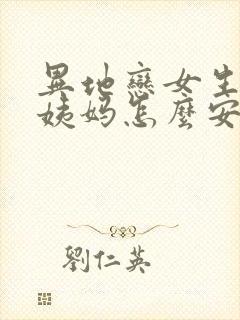 異地戀女生
姨妈怎麼安
劉仁英